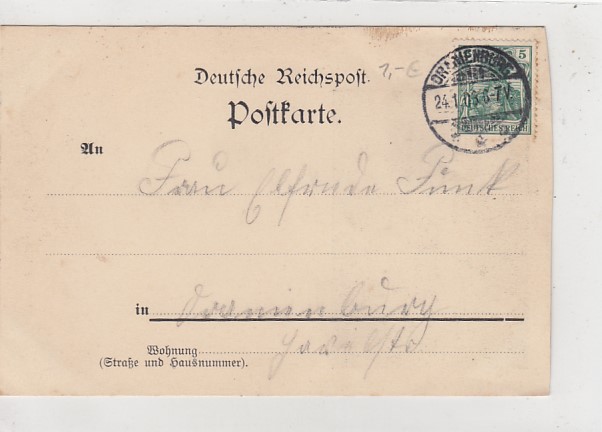 Deutsche Reichspost.
1,-€
5
ORANIENBURG
24.1.03.6-7V.
DEUTSCHES REICH
Postkarte.
An
Frau Elfriede Funk
in Oranienburg
Wohnung
(Straße und Hausnummer).